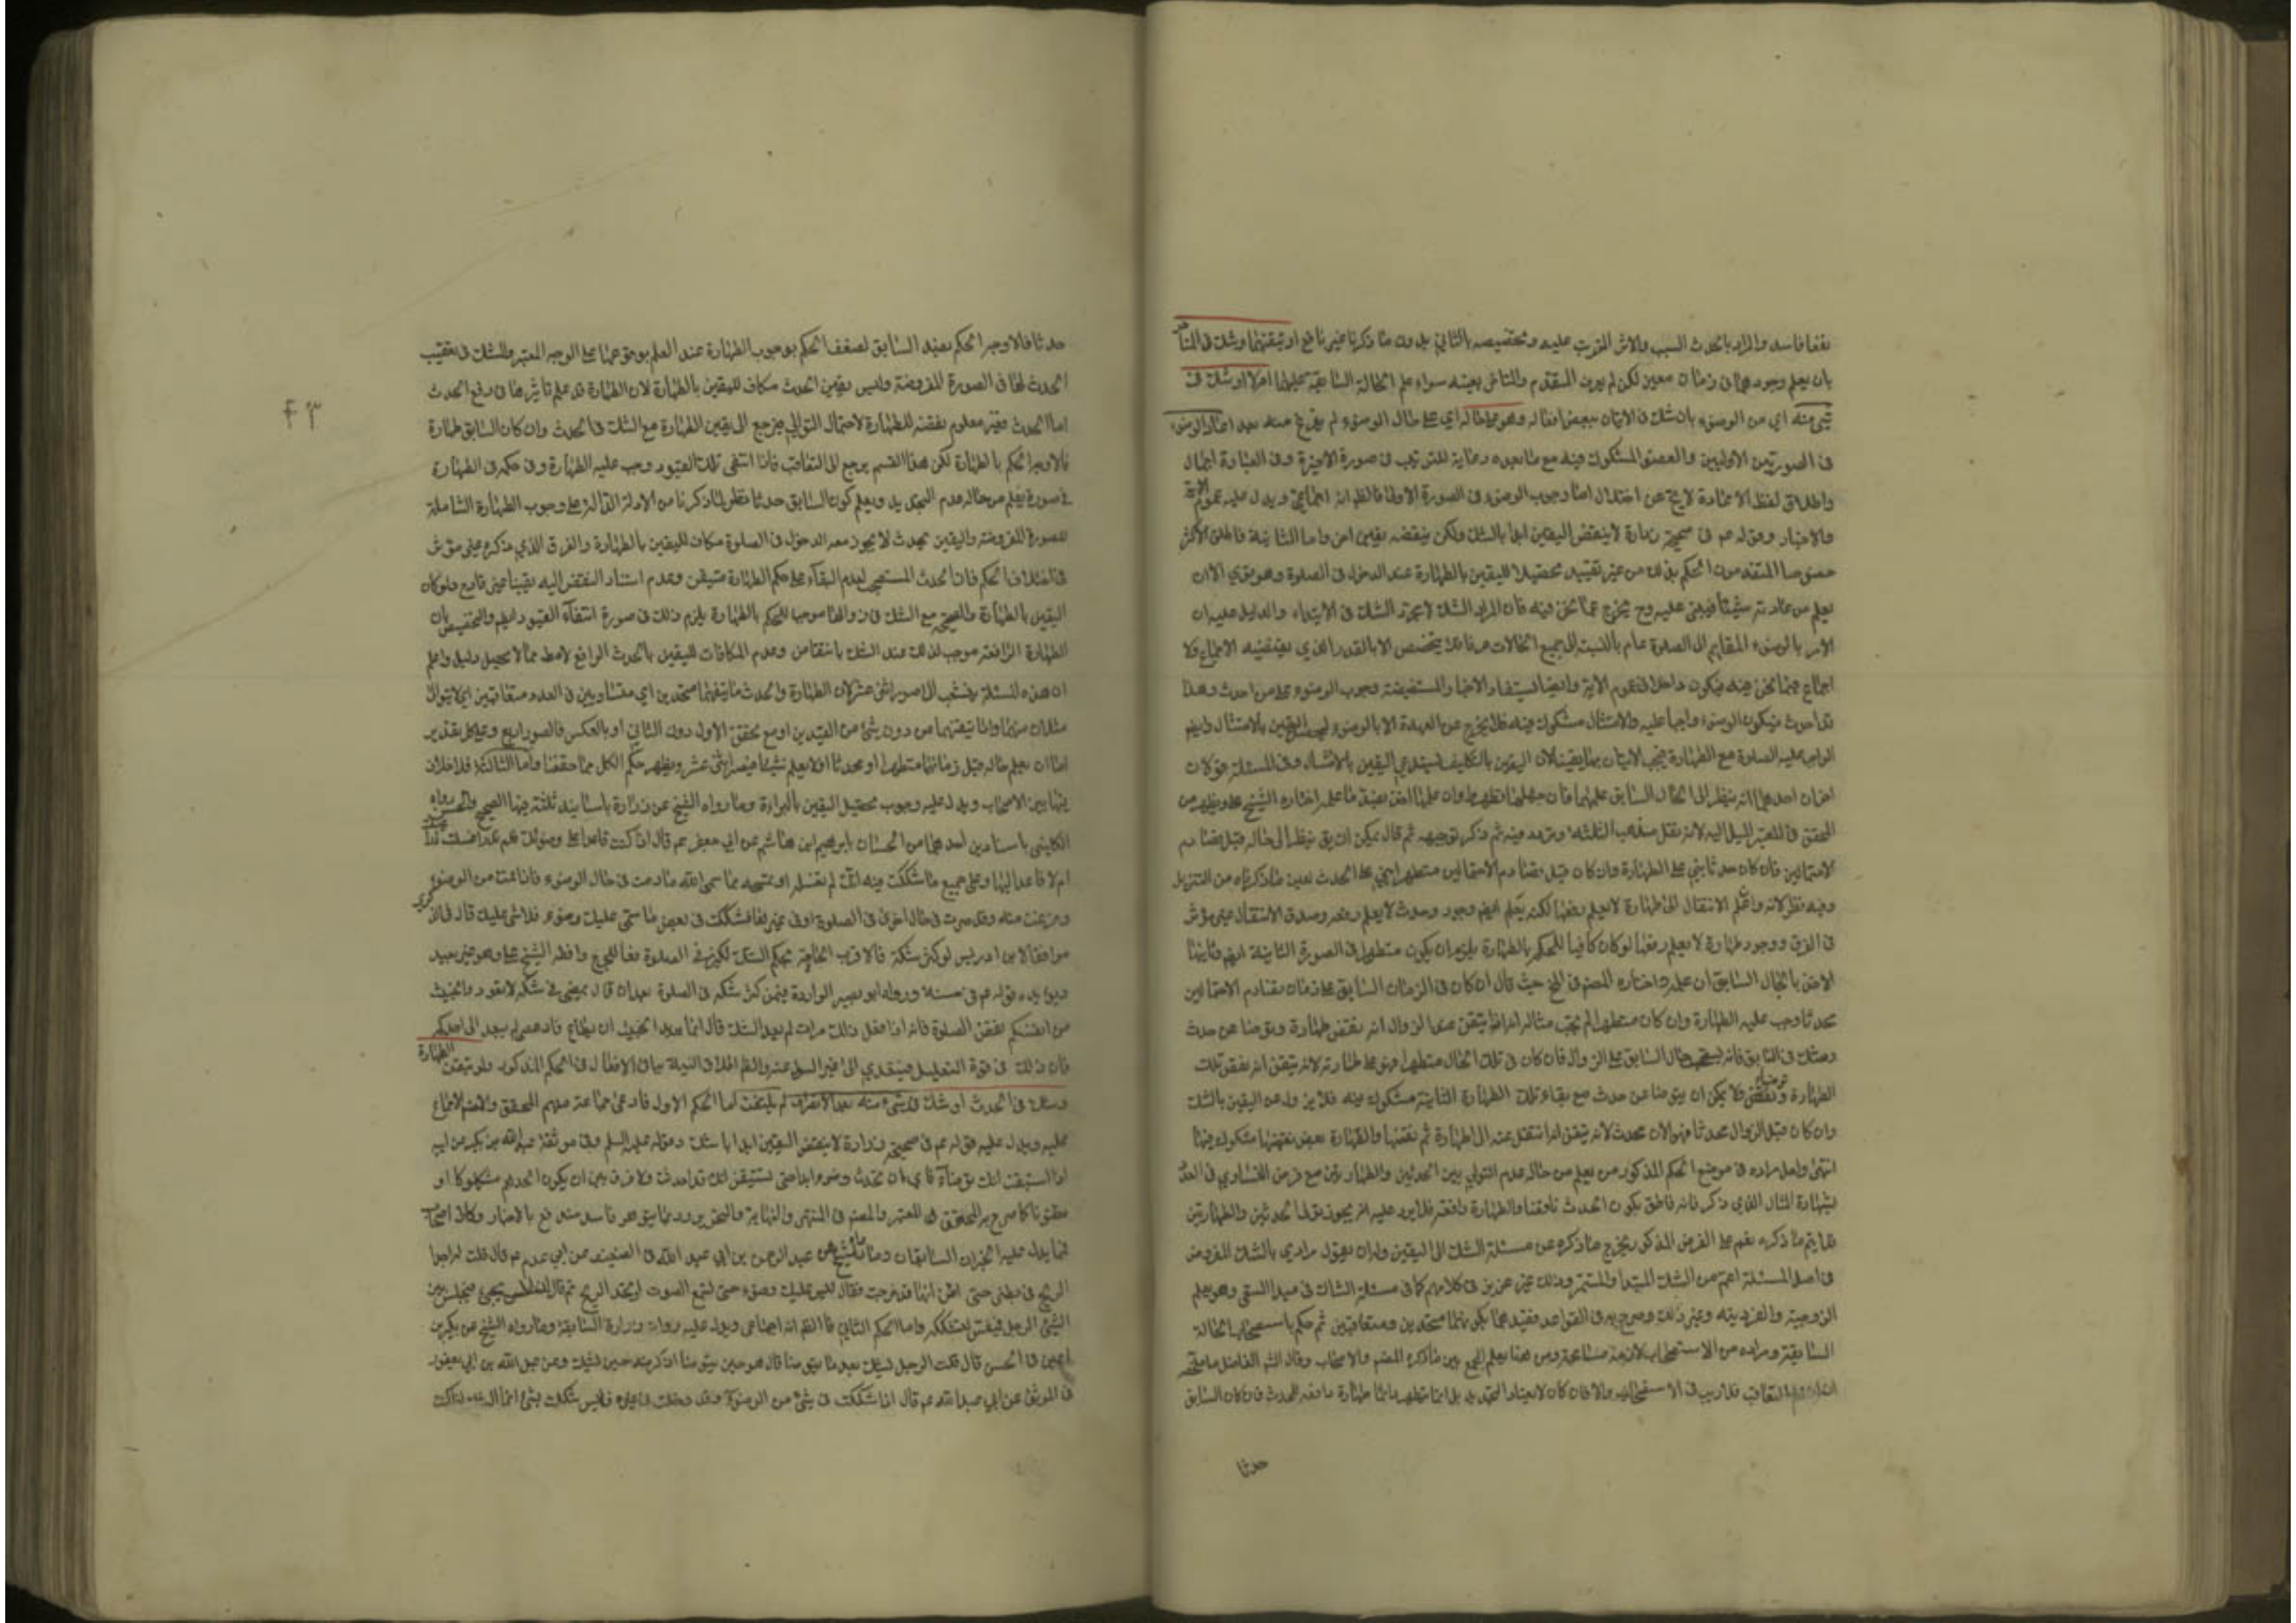 فاسد والمراد بالحدث السبب والاثر المترتب عليه وتخصيصه بالثاني بدون ما ذكرنا غير نافع او تيقنهما وشك في المتأخر
بان يعلم وجودهما في زمان معين لكن لم يدر المتقدم والمتاخر بعينه سواء علم الحالة السابقة عليهما ام لا او شك في
شيء منه اي من الوضوء بان شك في الاتيان ببعض افعاله وهو على حاله اي على حال الوضوء لم يفرغ منه بعد اعاد الوضوء
في الصورتين الاوليين والعضو المشكوك فيه مع ما بعده رعاية للترتيب في صورة الاخيرة وفي العبارة اجمال
واطلاق لفظ الاعادة لا يخ عن اختلال اما وجوب الوضوء في الصورة الاولى فالظ انه اجماعي ويدل عليه عموم الآية
والاخبار وقوله عم في صحيحة زرارة لا ينقض اليقين ابدا بالشك ولكن ينقضه بيقين اخر واما الثانية فاطلق الاكثر
خصوصا المتقدمون الحكم بذلك من غير تقييد تحصيلا لليقين بالطهارة عند الدخول في الصلوة وهو قوي الا ان
الامر بالوضوء للقايم الى الصلوة عام بالنسبة الى جميع الحالات
اجماع فيما نحن فيه فيكون داخلا في عموم الآية وايضا يستفاد من الاخبار المستفيضة وجوب الوضوء على من احدث وهذا
قد احدث فيكون الوضوء واجبا عليه والامتثال مشكوك فيه فلا يخرج عن العهدة الا بالوضوء
الواجب عليه الصلوة مع الطهارة فيجب الاتيان بها يقينا لان اليقين بالتكليف يستدعي اليقين بالامتثال وفي المسئلة قولان
اخران احدهما انه ينظر الى الحال السابق عليهما فان جهلهما تطهر وان علمها اخذ بضد ما علم اختاره الشيخ علي ويظهر من
المحقق في المعتبر الميل اليه لانه نقل مذهب الثلثة وتردد فيه ثم ذكر توجيهه ثم قال يمكن ان يق ينظر الى حاله قبل تصادم
الاحتمالين فان كان حدثا بني على الطهارة وان كان قبل تصادم الاحتمالين متطهرا بني على الحدث بعين ما ذكرناه من التنزيل
وفيه نظر لانه وان علم الانتقال الى طهارة لا يعلم نقضها لكنه يعلم ايضا وجود حدث لا يعلم رفعه وصدق الانتقال غير مؤثر
في الفرق ووجود طهارة لا يعلم رفعها لو كان كافيا للحكم بالطهارة يلزم ان يكون متطهرا في الصورة الثانية ايضا وثانيهما
الاخذ بالحال السابق ان علم واختاره المصنف في لخ حيث قال ان كان في الزمان السابق على زمان تصادم الاحتمالين
محدثا وجب عليه الطهارة وان كان متطهرا لم يجب مثاله اذا تيقن عند الزوال انه نقض طهارة وتوضأ عن حدث
وشك في السابق فانه يستصحب حال السابق على الزوال فان كان في تلك الحال متطهرا فهو على طهارته لانه تيقن انه نقض تلك
الطهارة وتوضأ ولا يمكن ان يتوضأ عن حدث مع بقاء تلك الطهارة الثانية مشكوك فيه فلا يزول عن اليقين بالشك
وان كان قبل الزوال محدثا فهو الان محدث لانه تيقن انه انتقل عنه الى طهارة ثم نقضها والطهارة بعد نقضها مشكوك فيها
انتهى ولعل مراده في موضع الحكم المذكور من يعلم من حاله عدم التوالي بين الحدثين والطهارتين مع فرض التساوي في العدد
بشهادة المثال الذي ذكر فانه ناطق بكون الحدث ناقضا والطهارة رافعة فلا يرد عليه انه يجوز توالي الحدثين والطهارتين
فلا يتم ما ذكره نعم على الفرض المذكور يخرج ما ذكره عن مسئلة الشك الى اليقين وله ان يقول مرادي بالشك المفروض
في اصل المسئلة اعم من الشك المبتدا والمستمر وذلك غير عزيز في كلامهم كما في مسئلة الشاك في مبدا السعي وهو يعلم
الزوجية والفردية وغير ذلك وصرح به في القواعد فقيدهما بكونهما متحدين ومتعاقبين ثم حكم باستصحاب الحالة
السابقة ومراده من الاستصحاب لازمه مسامحة ومن هنا يعلم الجمع بين ما ذكره المصنف والاصحاب وقال الشارح الفاضل ما ملخصه
التعاقب فلا ريب في والا فان كان لا يعتاد التجديد بل انما يتطهر دائما طهارة رافعة للحدث فان كان السابق
حدثا
٤٣
حدثا فالاوجه الحكم بضد السابق لضعف الحكم بوجوب الطهارة عند العلم بوقوعها على الوجه المعتبر والشك في تعقيب
الحدث لها في الصورة المفروضة وليس يقين الحدث مكاف لليقين بالطهارة لان الطهارة قد علم تاثيرها في رفع الحدث
اما الحدث فغير معلوم نقضه للطهارة لاحتمال التوالي فيرجع الى يقين الطهارة مع الشك في الحدث وان كان السابق طهارة
فالاوجه الحكم بالطهارة لكن هذا القسم يرجع الى التعاقب فاذا انتفى تلك القيود وجب عليه الطهارة وفي حكمه في الطهارة
في صورة يعلم من حاله عدم التجديد ويعلم كون السابق حدثا نظر لما ذكرنا من الادلة الدالة على وجوب الطهارة الشاملة
للصورة المفروضة واليقين بحدث لا يجوز معه الدخول في الصلوة مكاف لليقين بالطهارة والفرق الذي ذكره غير مؤثر
في اختلاف الحكم فان الحدث المستصحب لعدم البقاء على حكم الطهارة متيقن وعدم استناد النقض اليه يقينا غير قادح ولو كان
اليقين بالطهارة مع الشك في زوالها موجبا للحكم بالطهارة يلزم ذلك في صورة انتفاء القيود ايضا والتخصيص بان
الطهارة الرافعة موجب لذلك عند الشك بانتقاض وعدم المكافات لليقين بالحدث الرافع لا مط مما لا يحيل دليل واعلم
ان هذه المسئلة ينشعب الى صور اثنى عشر لان الطهارة والحدث متحدين اي متساويين في العدد متعاقبين اي لا يتوالى
مثلان منهما واما تيقنهما من دون شيء من القيدين او مع تحقق الاول دون الثاني او بالعكس فالصور اربع وعلى كل تقدير
اما ان يعلم حاله قبل زمانهما متطهرا او محدثا او لا يعلم شيئا فيصير اثنى عشر ويظهر حكم الكل مما حققنا واما الثالثة فلا خلاف
فيها بين الاصحاب ويدل عليه وجوب تحصيل اليقين بالبراءة وما رواه الشيخ عن زرارة باسانيد ثلثة فيها الصحيح والحسن ورواه
الكليني باسنادين احدهما من الحسان بابراهيم ابن هاشم عن ابي جعفر عم قال اذا كنت قاعدا على وضوئك فلم تدر اغسلت ذراعيك
ام لا فاعد عليها وعلى جميع ما شككت فيه انك لم تغسله او تمسحه مما سمى الله ما دمت في حال الوضوء فاذا قمت من الوضوء
وفرغت منه وقد صرت في حال اخرى في الصلوة او في غيرها فشككت في بعض ما سمى عليك وضوءه فلا شيء عليك قال في الذكرى
موافقا لابن ادريس لو كثر شكه فالاقرب الحاقه بحكم الشك الكثير في الصلوة دفعا للحرج وافقه الشيخ علي وهو غير بعيد
ويؤيده قوله عم في حسنة زرارة وابو بصير الواردة فيمن كثر شكه في الصلوة بعد ان قال يمضي في شكه لا تعود والخبيث
من انفسكم بنقض الصلوة فانه اذا فعل ذلك مرات لم يعد الشك قال انما يريد الخبيث ان يطاع فاذا عصي لم يعد الى احدكم
فان ذلك في قوة التعليل فيتعدى الى غير السؤال عنه والظ اطلاق النية بباقي الافعال في الحكم المذكور ولو تيقن الطهارة
وشك في الحدث او شك في شيء منه بعد الانصراف لم يلتفت اما الحكم الاول فادعى جماعة منهم المحقق والمصنف الاجماع
عليه ويدل عليه قوله عم في صحيحة زرارة لا ينقض اليقين ابدا بالشك وقوله عليه السلم وفي موثقة عبد الله بن بكير عن ابيه
اذا استيقنت انك توضأت فاياك ان تحدث وضوءا ابدا حتى تستيقن انك قد احدثت ولا فرق بين ان يكون الحدث مشكوكا او
مظنونا كما صرح به المحقق في المعتبر والمصنف في المنتهى والنهاية
مما يدل عليه الخبران السابقان وما رواه الشيخ عن عبد الرحمن بن ابي عبد الله في الصحيح عن ابي عبد الله عم قال قلت له اجد
الريح في بطني حتى اظن انها قد خرجت فقال ليس عليك وضوء حتى تسمع الصوت او تجد الريح ثم قال ان ابليس يجيء فيجلس بين
اليتي الرجل فيفسو ليشككه واما الحكم الثاني فالظ انه اجماعي ويدل عليه رواية زرارة السابقة وما رواه الشيخ عن بكير بن
اعين في الحسن قال قلت الرجل يشك بعد ما يتوضأ قال هو حين يتوضأ اذكر منه حين يشك وعن عبد الله بن ابي يعفور
في الموثق عن ابي عبد الله عم قال اذا شككت في شيء من الوضوء وقد دخلت في غيره فليس شكك بشيء انما الشك اذا كنت